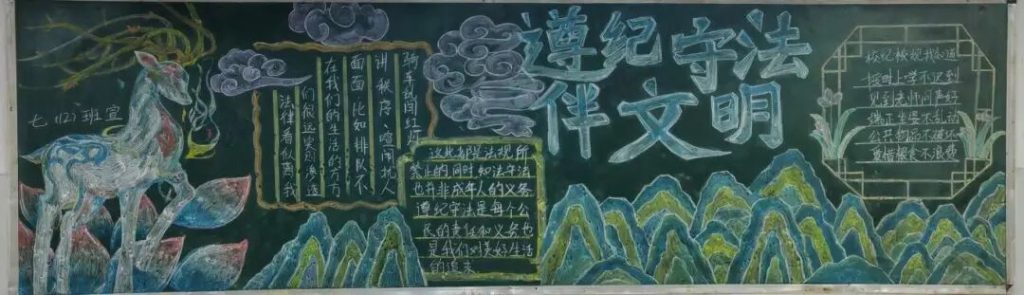 遵纪守法
伴文明
七(12)班宣
法律看似离我
们很远其实渗透
在我们的生活的方方
面面比如排队不
讲秩序喧闹他人
骑车乱闯红灯
这些都是法规所
禁止的同时知法守法
也并非成年人的义务
遵纪守法是每个公
民的责任和义务也
是我们对美好生活
的追求
校纪校规我知道
按时上学不迟到
见到老师问声好
端正坐姿不乱动
公共物品不破坏
爱惜粮食不浪费